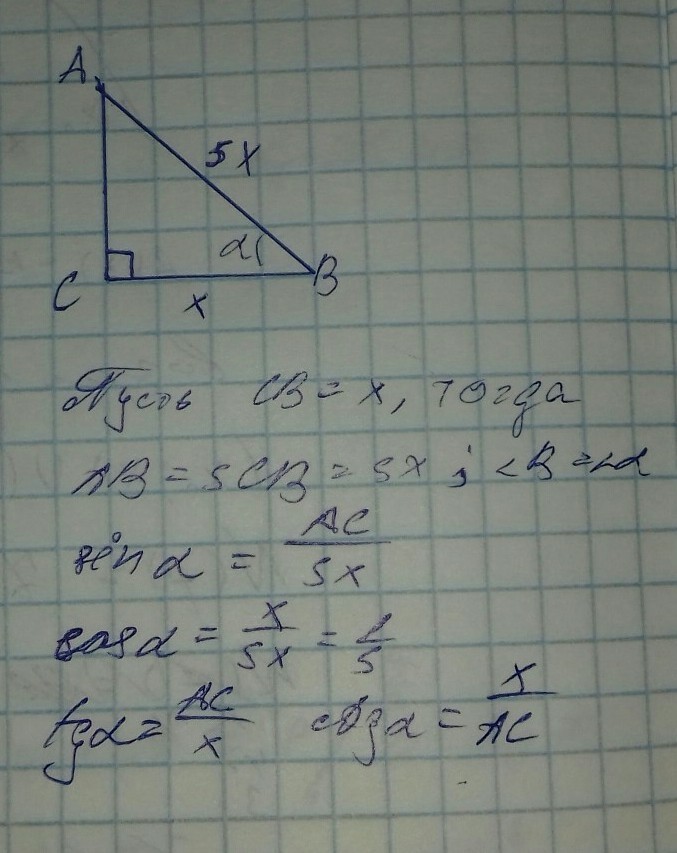 A
5x
α
C
B
x
Пусть CB = x, тогда
AB = 5CB = 5x ; <B = <α
sin α = AC/5x
cos α = x/5x = 1/5
tg α = AC/x ctg α = x/AC